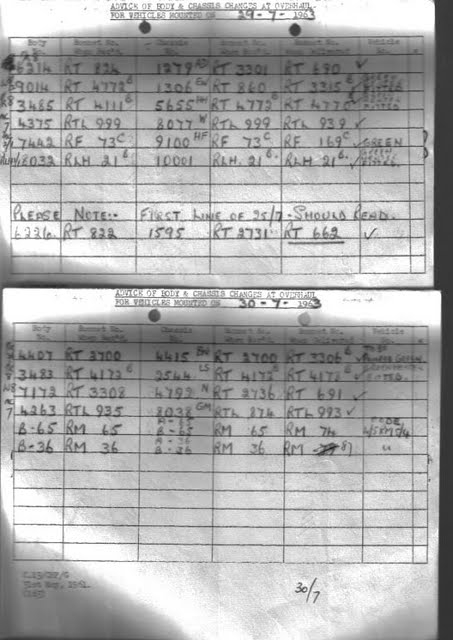 ADVICE OF BODY & CHASSIS CHANGES AT OVERHAUL
FOR VEHICLES MOUNTED ON 29-7-1963
Body No. Bonnet No. When Rec'd. Chassis No. Bonnet No. When Rec'd. Bonnet No. When Delivered Vehicle
6214 RT 824 1279 RT 3301 RT 690 ✓
9014 RT 4772 1306 RT 860 RT 3215 ✓ GREEN
3465 RT 4111 5655 HH RT 4772 RT 4772 ✓
4375 RTL 999 8077 W RTL 999 RTL 939 ✓
7442 RF 73 C 9100 HF RF 73 C RF 169 C ✓ GREEN
8032 RLH 21 10001 RLH 21 RLH 21 ✓ GREEN
PLEASE NOTE:- FIRST LINE OF 25/7 - SHOULD READ.
6226 RT 822 1595 RT 2731 RT 662 ✓
ADVICE OF BODY & CHASSIS CHANGES AT OVERHAUL
FOR VEHICLES MOUNTED ON 30-7-1963
Body No. Bonnet No. When Rec'd. Chassis No. Bonnet No. When Rec'd. Bonnet No. When Delivered Vehicle
4407 RT 2700 4415 RT 2700 RT 3206 ✓ GREEN.
3483 RT 4172 2544 LS RT 4172 RT 4172 ✓
7172 RT 3308 4792 N RT 2736 RT 691 ✓
4263 RTL 935 8038 GM RTL 874 RTL 993 ✓
B-65 RM 65 A-65 B-65 RM 65 RM 74 CODE
B-36 RM 36 A-36 B-36 RM 36 RM 87 "
31st May, 1961.
30/7